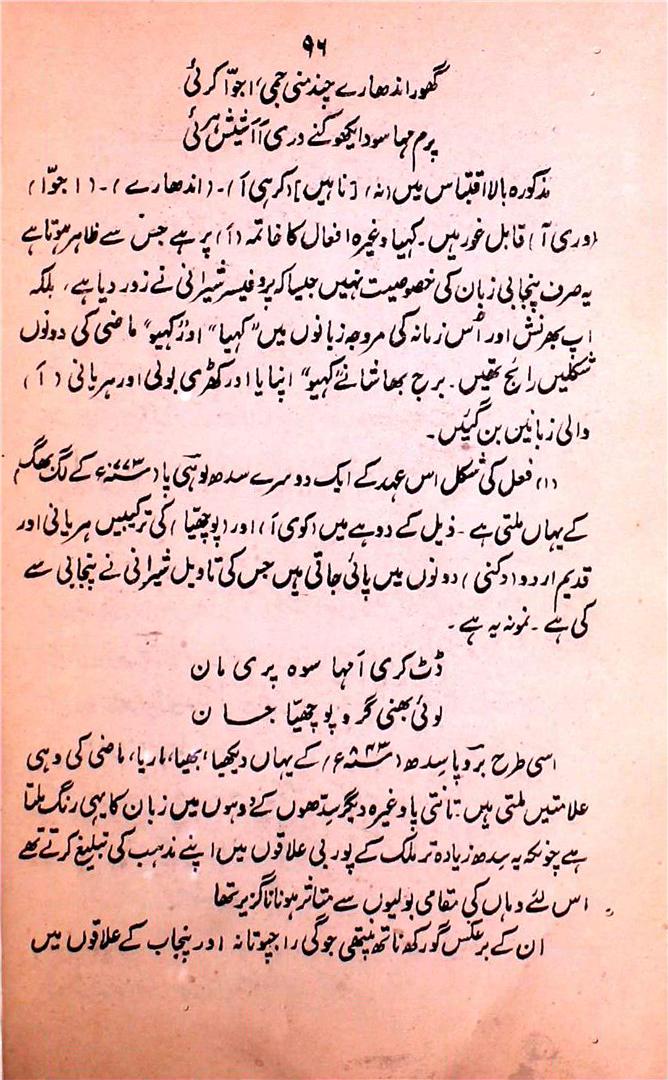 ۹۶
گھور اندھارے چند منی جمی' اجوّا کرئی
پرم مہا سو دایکھو کنے دری آ آشیش ہرئی
مذکورہ بالا اقتباس میں (نہ) [ناہیں] (کرہی آ)۔ (اندھارے)۔ (اجوّا)
(وری آ) قابل غور ہیں۔ کہیا وغیرہ افعال کا خاتمہ (اَ) پر ہے جس سے ظاہر ہوتا ہے
یہ صرف پنجابی زبان کی خصوصیت نہیں جیسا کہ پروفیسر شیرانی نے زور دیا ہے، بلکہ
اپ بھرنش اور اُس زمانہ کی مروجہ زبانوں میں "کہیا" اور "کہیو" ماضی کی دونوں
شکلیں رائج تھیں۔ برج بھاشا نے "کہیو" اپنایا اور کھڑی بولی اور ہریانی (اَ)
والی زبانیں بن گئیں۔
(۱) فعل کی شکل اس عہد کے ایک دوسرے سدھ لوہی پا (۷۷۳ء) کے لگ بھگ
کے یہاں ملتی ہے۔ ذیل کے دوہے میں (کوی آ) اور (پوچھیّا) کی ترکیبیں ہریانی اور
قدیم اردو (دکنی) دونوں میں پائی جاتی ہیں جس کی تاویل شیرانی نے پنجابی سے
کی ہے۔ نمونہ یہ ہے۔
ڈٹ کری اَمہا سوہ پری مان
لوئی بھنی گرو پوچھیّا جان
اسی طرح بروپا سدھ (۸۴۳ء) کے یہاں دیکھیا، بھیا، ماریا، ماضی کی وہی
علامتیں ملتی ہیں۔ تانتی پا وغیرہ دیگر سدّھوں کے دوہوں میں زبان کا یہی رنگ ملتا
ہے چونکہ یہ سدھ زیادہ تر ملک کے پوربی علاقوں میں اپنے مذہب کی تبلیغ کرتے تھے
اس لئے وہاں کی مقامی بولیوں سے متاثر ہونا ناگزیر تھا
ان کے برعکس گورکھ ناتھ پنتھی جوگی راجپوتانہ اور پنجاب کے علاقوں میں